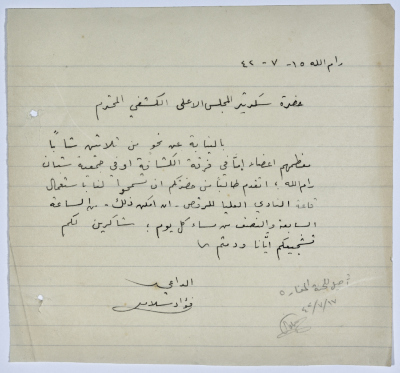 رام الله ١٥ - ٧ - ٤٢
حضرة سكرتير المجلس الاعلى الكشفي المحترم
بالنيابة عن نحو من ثلاثين شابًا
معظمهم اعضاء إمّا في فرقة الكشافة او في جمعية شبان
رام الله ، اتقدم طالبًا من حضرتكم ان تسمحوا لنا باستعمال
قاعة النادي العليا للرقص - ان امكن ذلك - من الساعة
السابعة والنصف من مساء كل يوم ؛ شاكرين لكم
تشجيعكم ايّانا ودمتم
الداعي
فؤاد